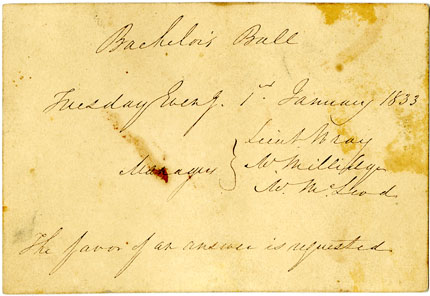 Bachelors Ball
Tuesday Eveng. 1st January 1833
Lieut Wray
Managers
Mr. Milledge
Mr. McLeod
The favor of an answer is requested